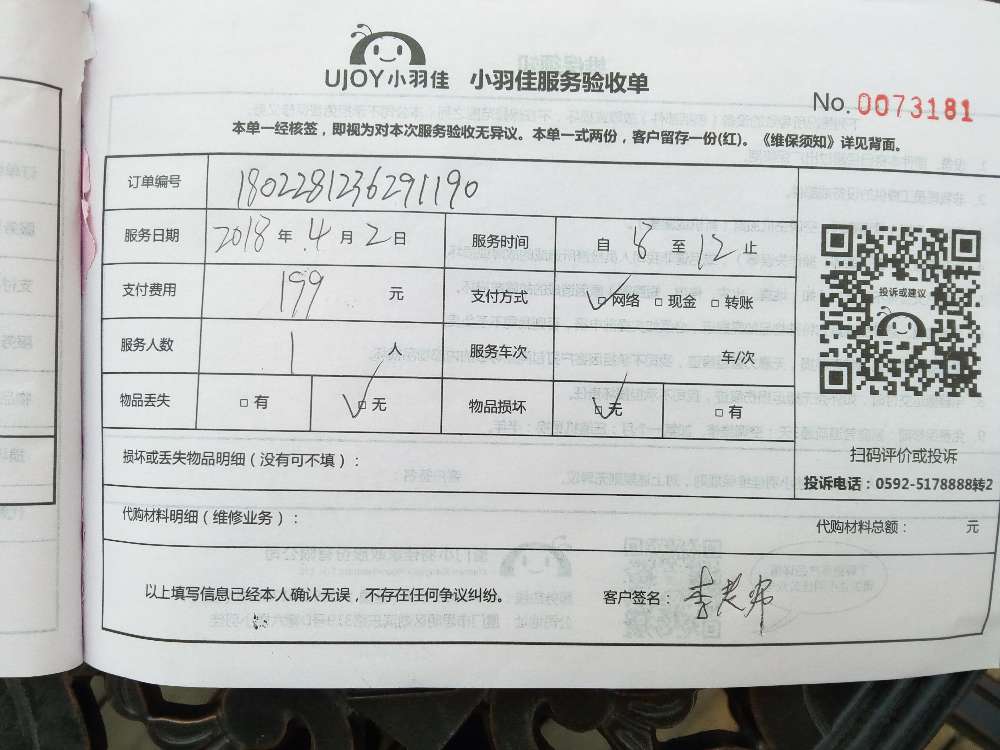 UJOY小羽佳 小羽佳服务验收单
No. 0073181
本单一经核签，即视为对本次服务验收无异议。本单一式两份，客户留存一份(红)。《维保须知》详见背面。
订单编号 180228123629 1190
服务日期 2018 年 4 月 2 日 服务时间 自 8 至 12 止
支付费用 199 元 支付方式 ☑网络 □现金 □转账
服务人数 1 人 服务车次 车/次
物品丢失 □有 ☑无 物品损坏 ☑无 □有
投诉或建议
扫码评价或投诉
投诉电话：0592-5178888转2
损坏或丢失物品明细（没有可不填）：
代购材料明细（维修业务）： 代购材料总额： 元
以上填写信息已经本人确认无误，不存在任何争议纠纷。 客户签名：李